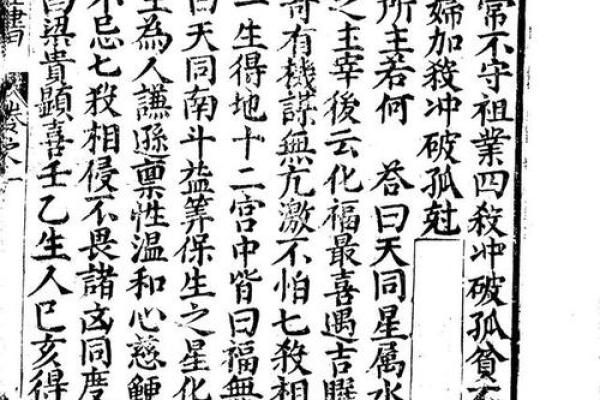 常不守祖業四殺冲破孤貧
婦加殺冲破孤尅
所主若何　荅曰天同星属水
之主宰後云化福最喜遇吉曜
竒有機謀無亢激不怕七殺相
一生得地十二宮中皆曰福無
曰天同南斗益筭保生之星化
主為人謙遜禀性温和心慈鯁
不忌七殺相侵不畏諸㐫同度
昌梁貴顯喜壬乙生人巳亥得
書　卷之一